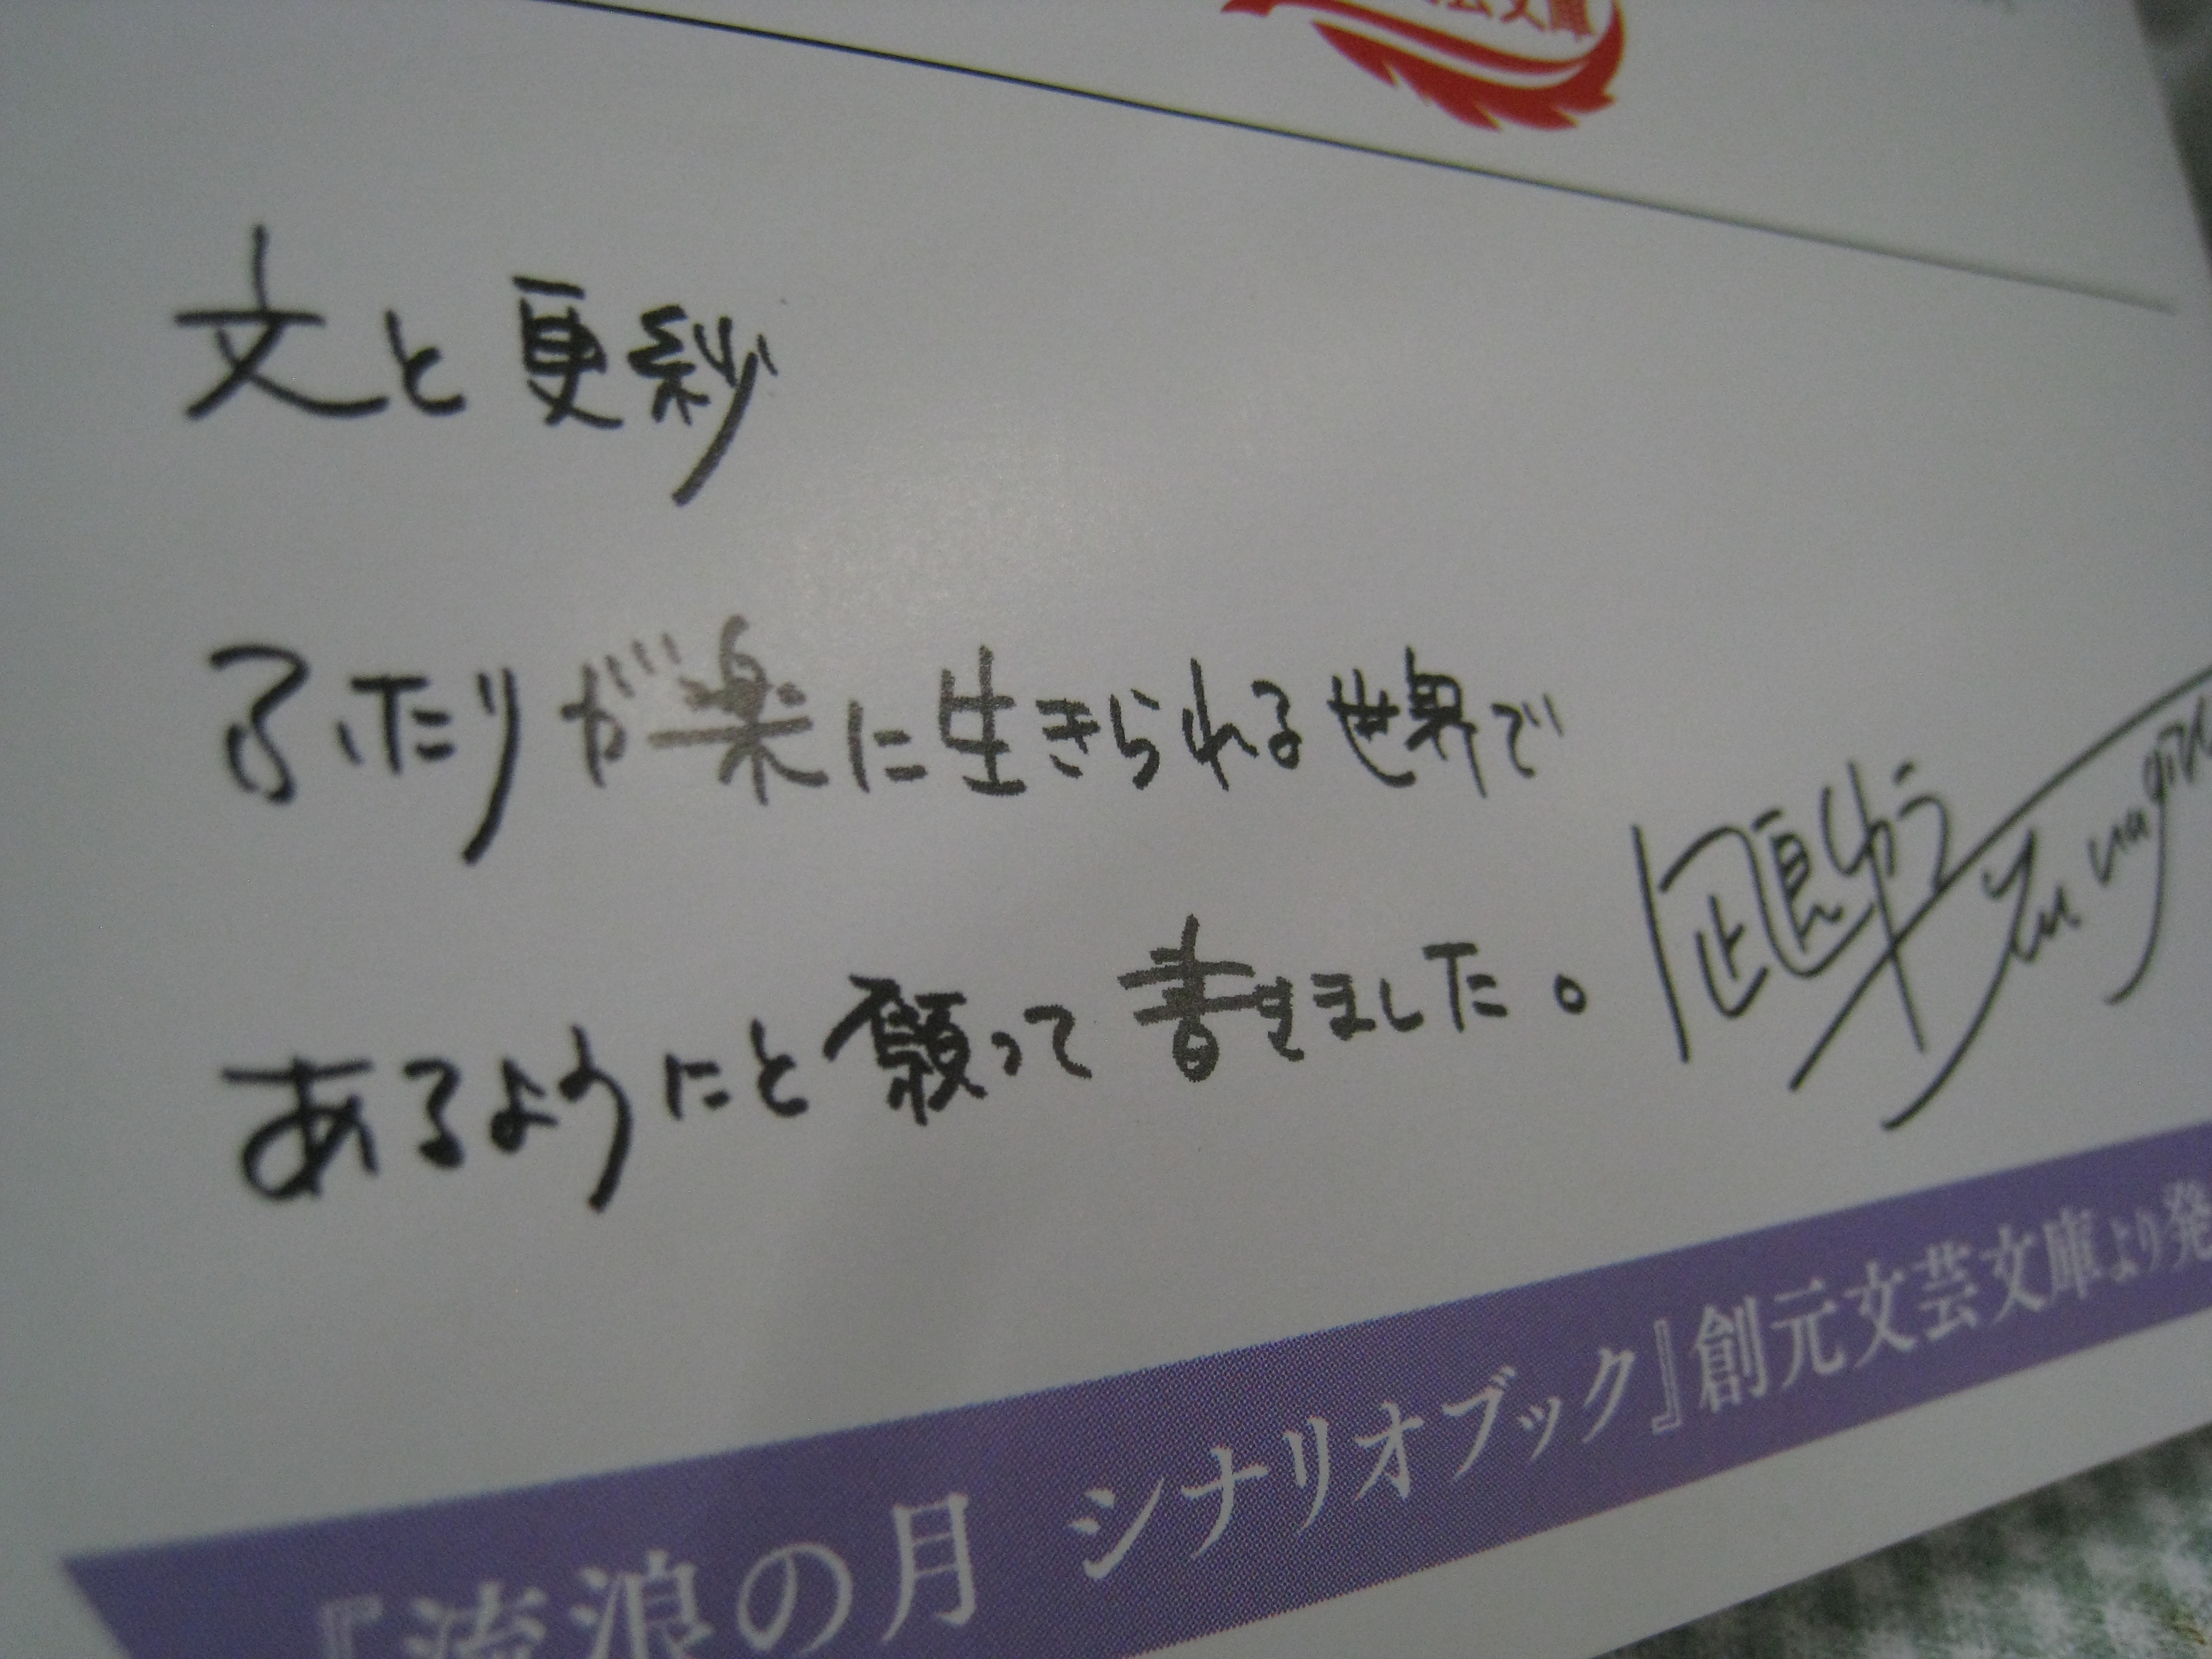 芸文庫
文と更紗
ふたりが楽に生きられる世界で
あるようにと願って書きました。
凪良ゆう
『流浪の月 シナリオブック』創元文芸文庫より発